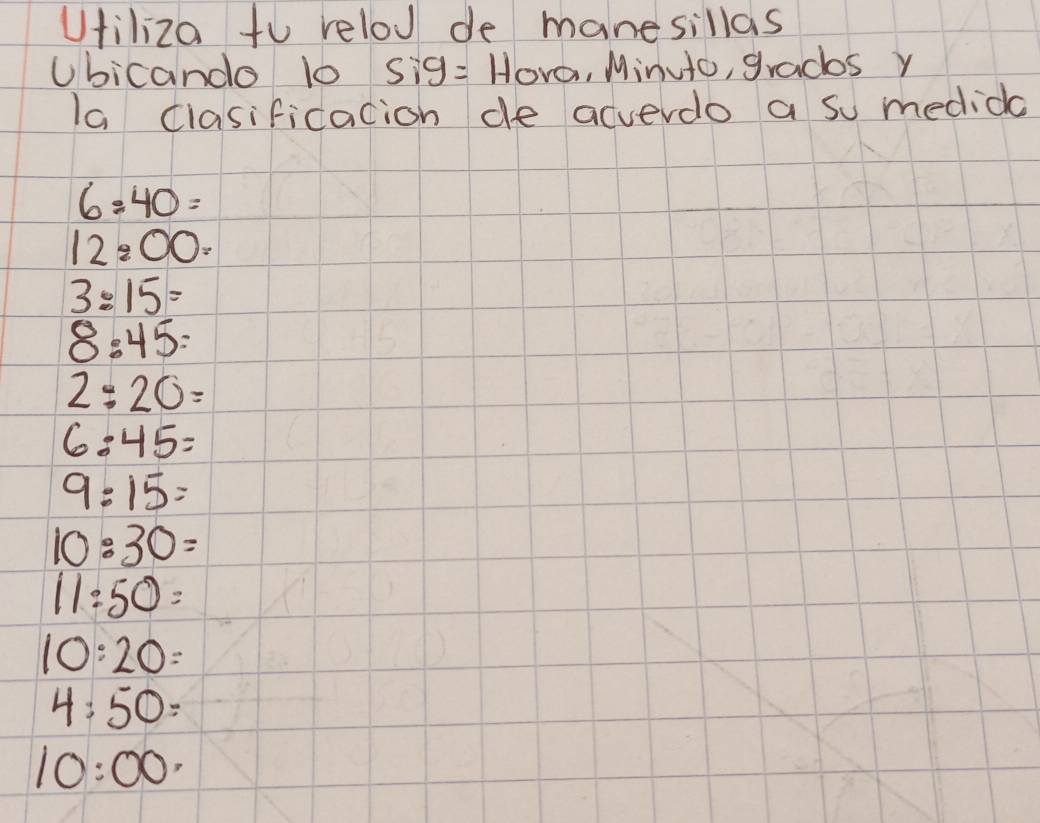 Utiliza tu relod de manesillas
Ubicando lo sig= Hora, Minuto, grados y
la clasificacion de acuerdo a su medida
6:40=
12:00=
3:15=
8:45=
2:20=
6:45=
9:15=
10:30=
11:50=
10:20=
4:50=
10:00=